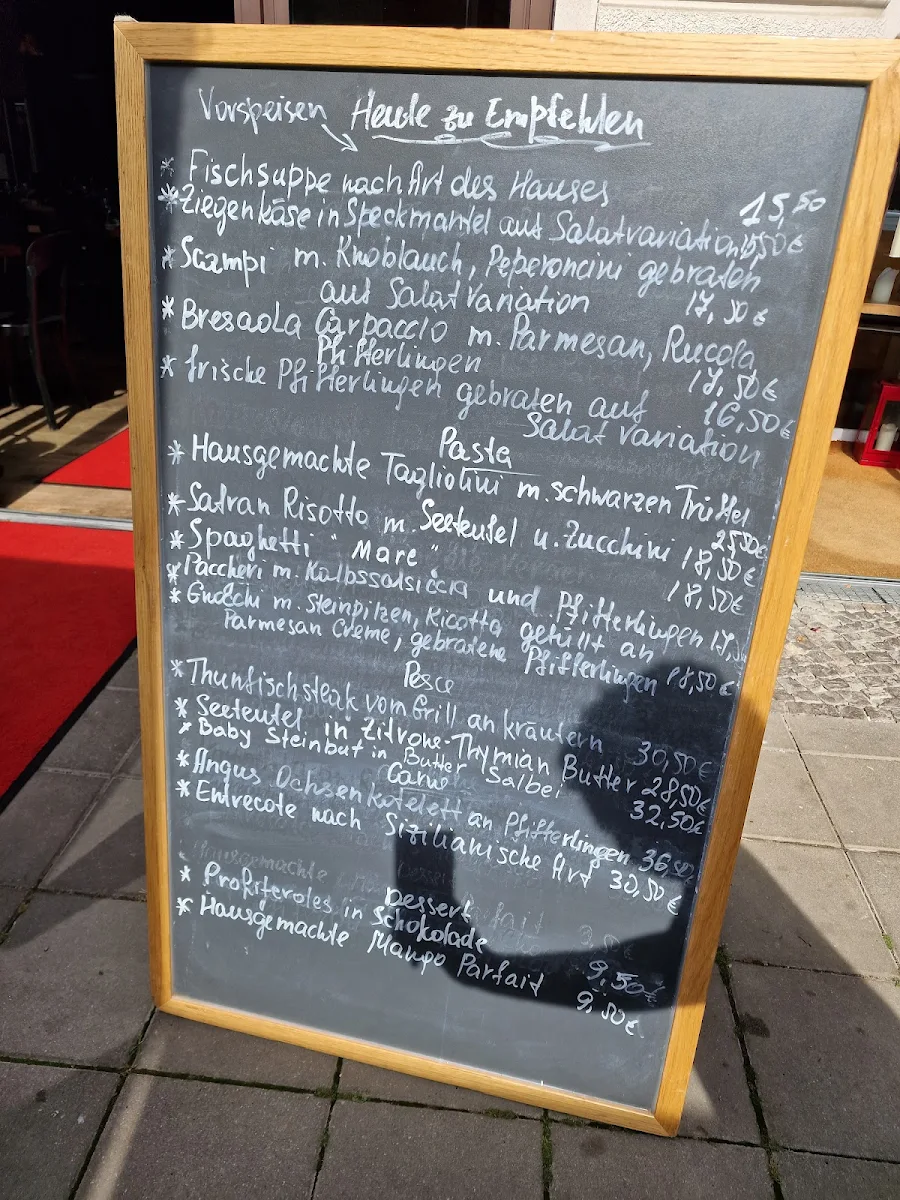 Vorspeisen Heute zu Empfehlen
* Fischsuppe nach Art des Hauses 15,50
* Ziegenkäse in Speckmantel auf Salatvariation 15,50€
* Scampi m. Knoblauch, Peperoncini gebraten
auf Salat Variation 17,50€
* Bresaola Carpaccio m. Parmesan, Rucola
Pfifferlingen 17,50€
* frische Pfifferlingen gebraten auf 16,50€
Salat Variation
Pasta
* Hausgemachte Tagliolini m. schwarzen Trüffel
25,50€
* Safran Risotto m. Seeteufel u. Zucchini 18,50€
* Spaghetti "Mare" 18,50€
* Paccheri m. Kalbssalsiccia und Pfifferlingen 17,50
* Gnocchi m. Steinpilzen, Ricotta gefüllt an
Parmesan Creme, gebratene Pfifferlingen 18,50€
Pesce
* Thunfischsteak vom Grill an kräutern 30,50€
* Seeteufel in Zitrone-Thymian Butter 28,50€
* Baby Steinbut in Butter Salbei 32,50€
Carne
* Angus Ochsenkotelett an Pfifferlingen 36,50€
* Entrecote nach Sizilianische Art 30,50€
Hausgemachte
Dessert
* Profiteroles in Schokolade 9,50€
* Hausgemachte Mango Parfait 9,50€